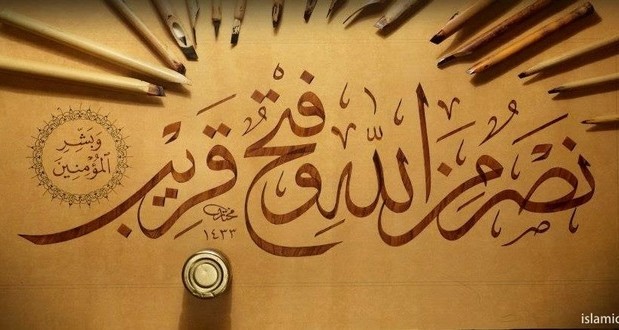 نَصْرٌ مِنَ اللّٰهِ وَفَتْحٌ قَرِيْبٌ
وَبَشِّرِ
الْمُؤْمِنِيْنَ
١٤٣٣
islamic